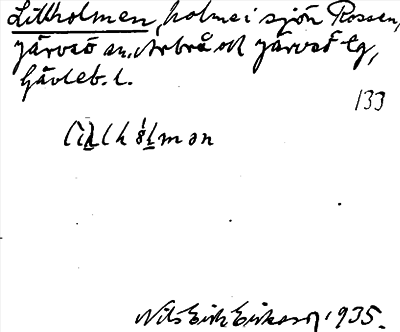 Lillholmen, holme i sjön Rossen,
Järvsö sn, Arbrå och Järvsö tg,
Gävleb. l.
133
Nils Erik Eriksson, 1935.